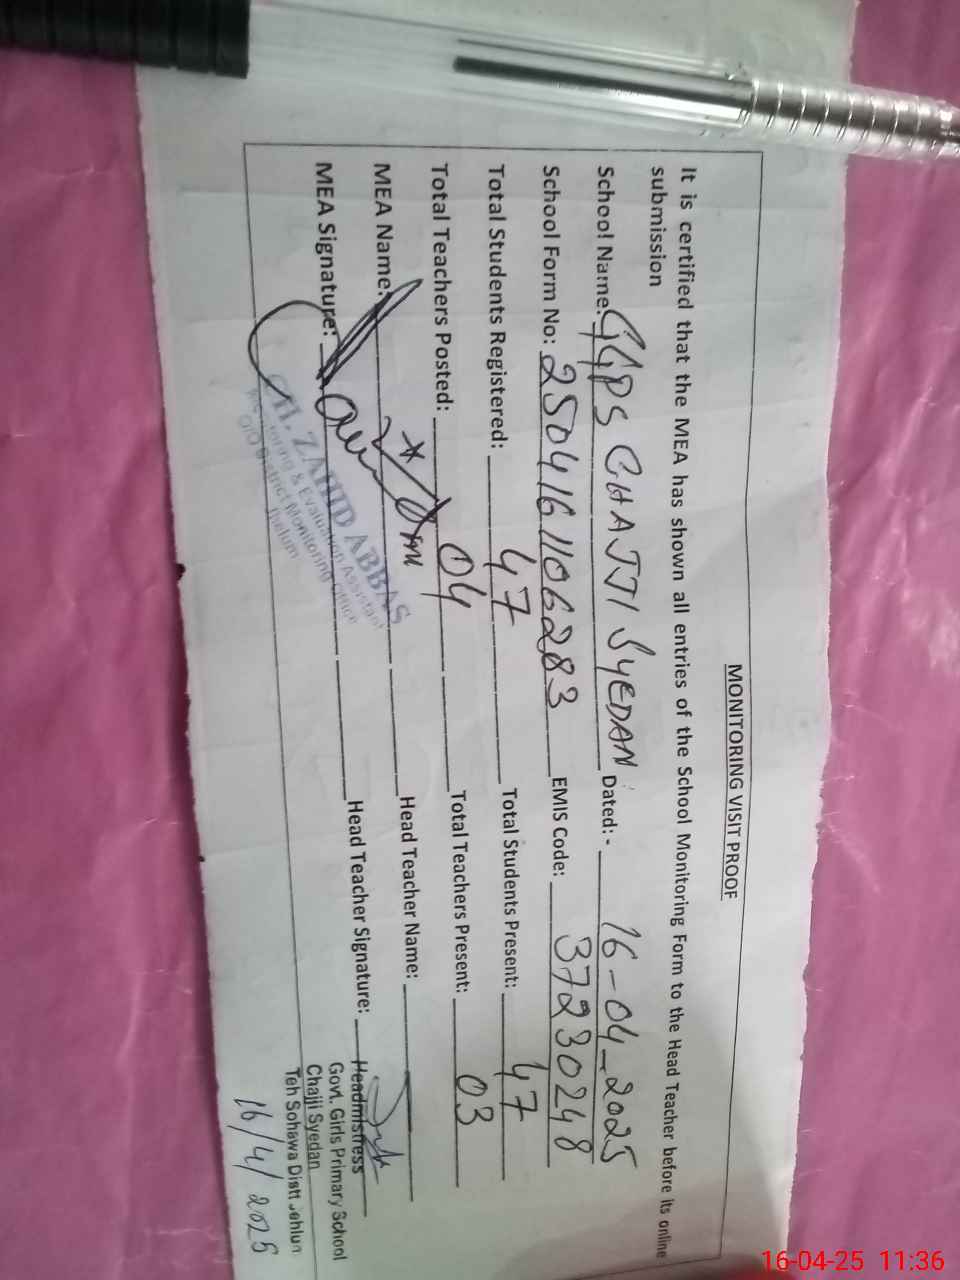 MONITORING VISIT PROOF
It is certified that the MEA has shown all entries of the School Monitoring Form to the Head Teacher before its online
submission
School Name: GGPS CHAJJI SYEDAN Dated:- 16-04-2025
School Form No: 2504161106283 EMIS Code: 37230248
Total Students Registered: 47 Total Students Present: 47
Total Teachers Posted: 04 Total Teachers Present: 03
MEA Name: Head Teacher Name:
MEA Signature: Head Teacher Signature:
ZAHID ABBAS
Monitoring & Evaluation Assistant
O/O District Monitoring Office
Jhelum
Headmistress
Govt. Girls Primary School
Chajji Syedan
Teh Sohawa Distt Jehlum
16/4/2025
16-04-25 11:36